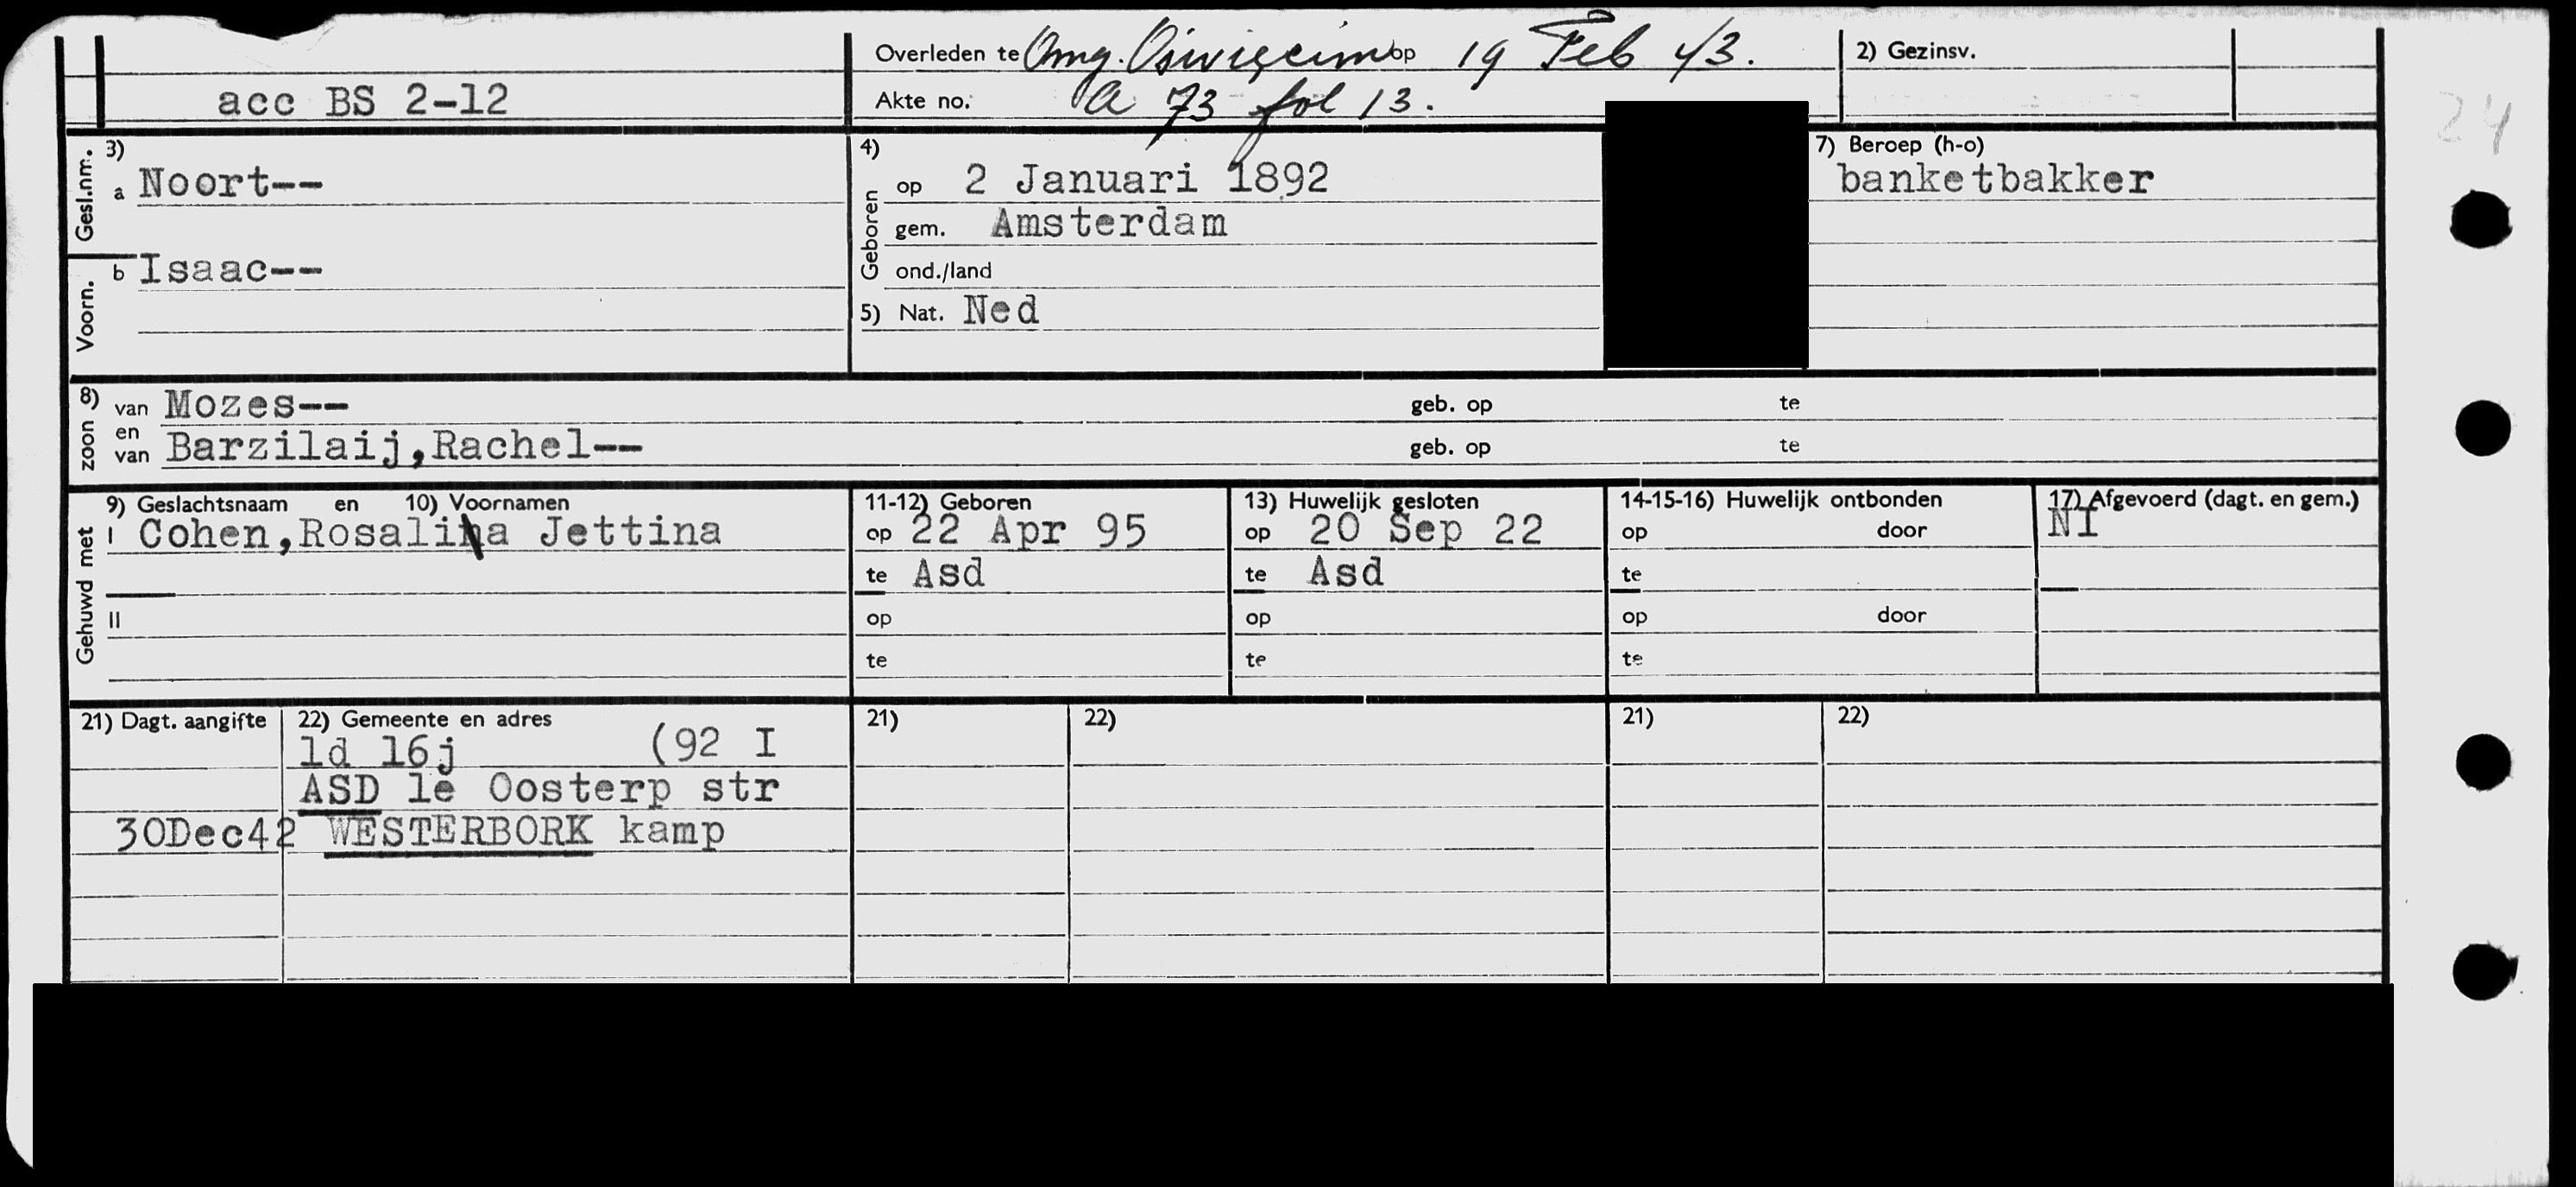 Overleden te Omg. Oświęcim op 19 Feb 43. 2) Gezinsv.
acc BS 2-12 Akte no. A 73 fol 13.
24
Gesl.nm. 3) 4) 7) Beroep (h-o)
a Noort-- Geboren op 2 Januari 1892 banketbakker
gem. Amsterdam
Voorn. b Isaac-- ond./land
5) Nat. Ned
zoon 8) van Mozes-- geb. op te
en van Barzilaij,Rachel-- geb. op te
Gehuwd met 9) Geslachtsnaam en 10) Voornamen 11-12) Geboren 13) Huwelijk gesloten 14-15-16) Huwelijk ontbonden 17) Afgevoerd (dagt. en gem.)
I Cohen,Rosalina Jettina op 22 Apr 95 op 20 Sep 22 op door NI
te Asd te Asd te
II op op op door
te te te
21) Dagt. aangifte 22) Gemeente en adres 21) 22) 21) 22)
ld 16j (92 I
ASD 1e Oosterp str
30Dec42 WESTERBORK kamp